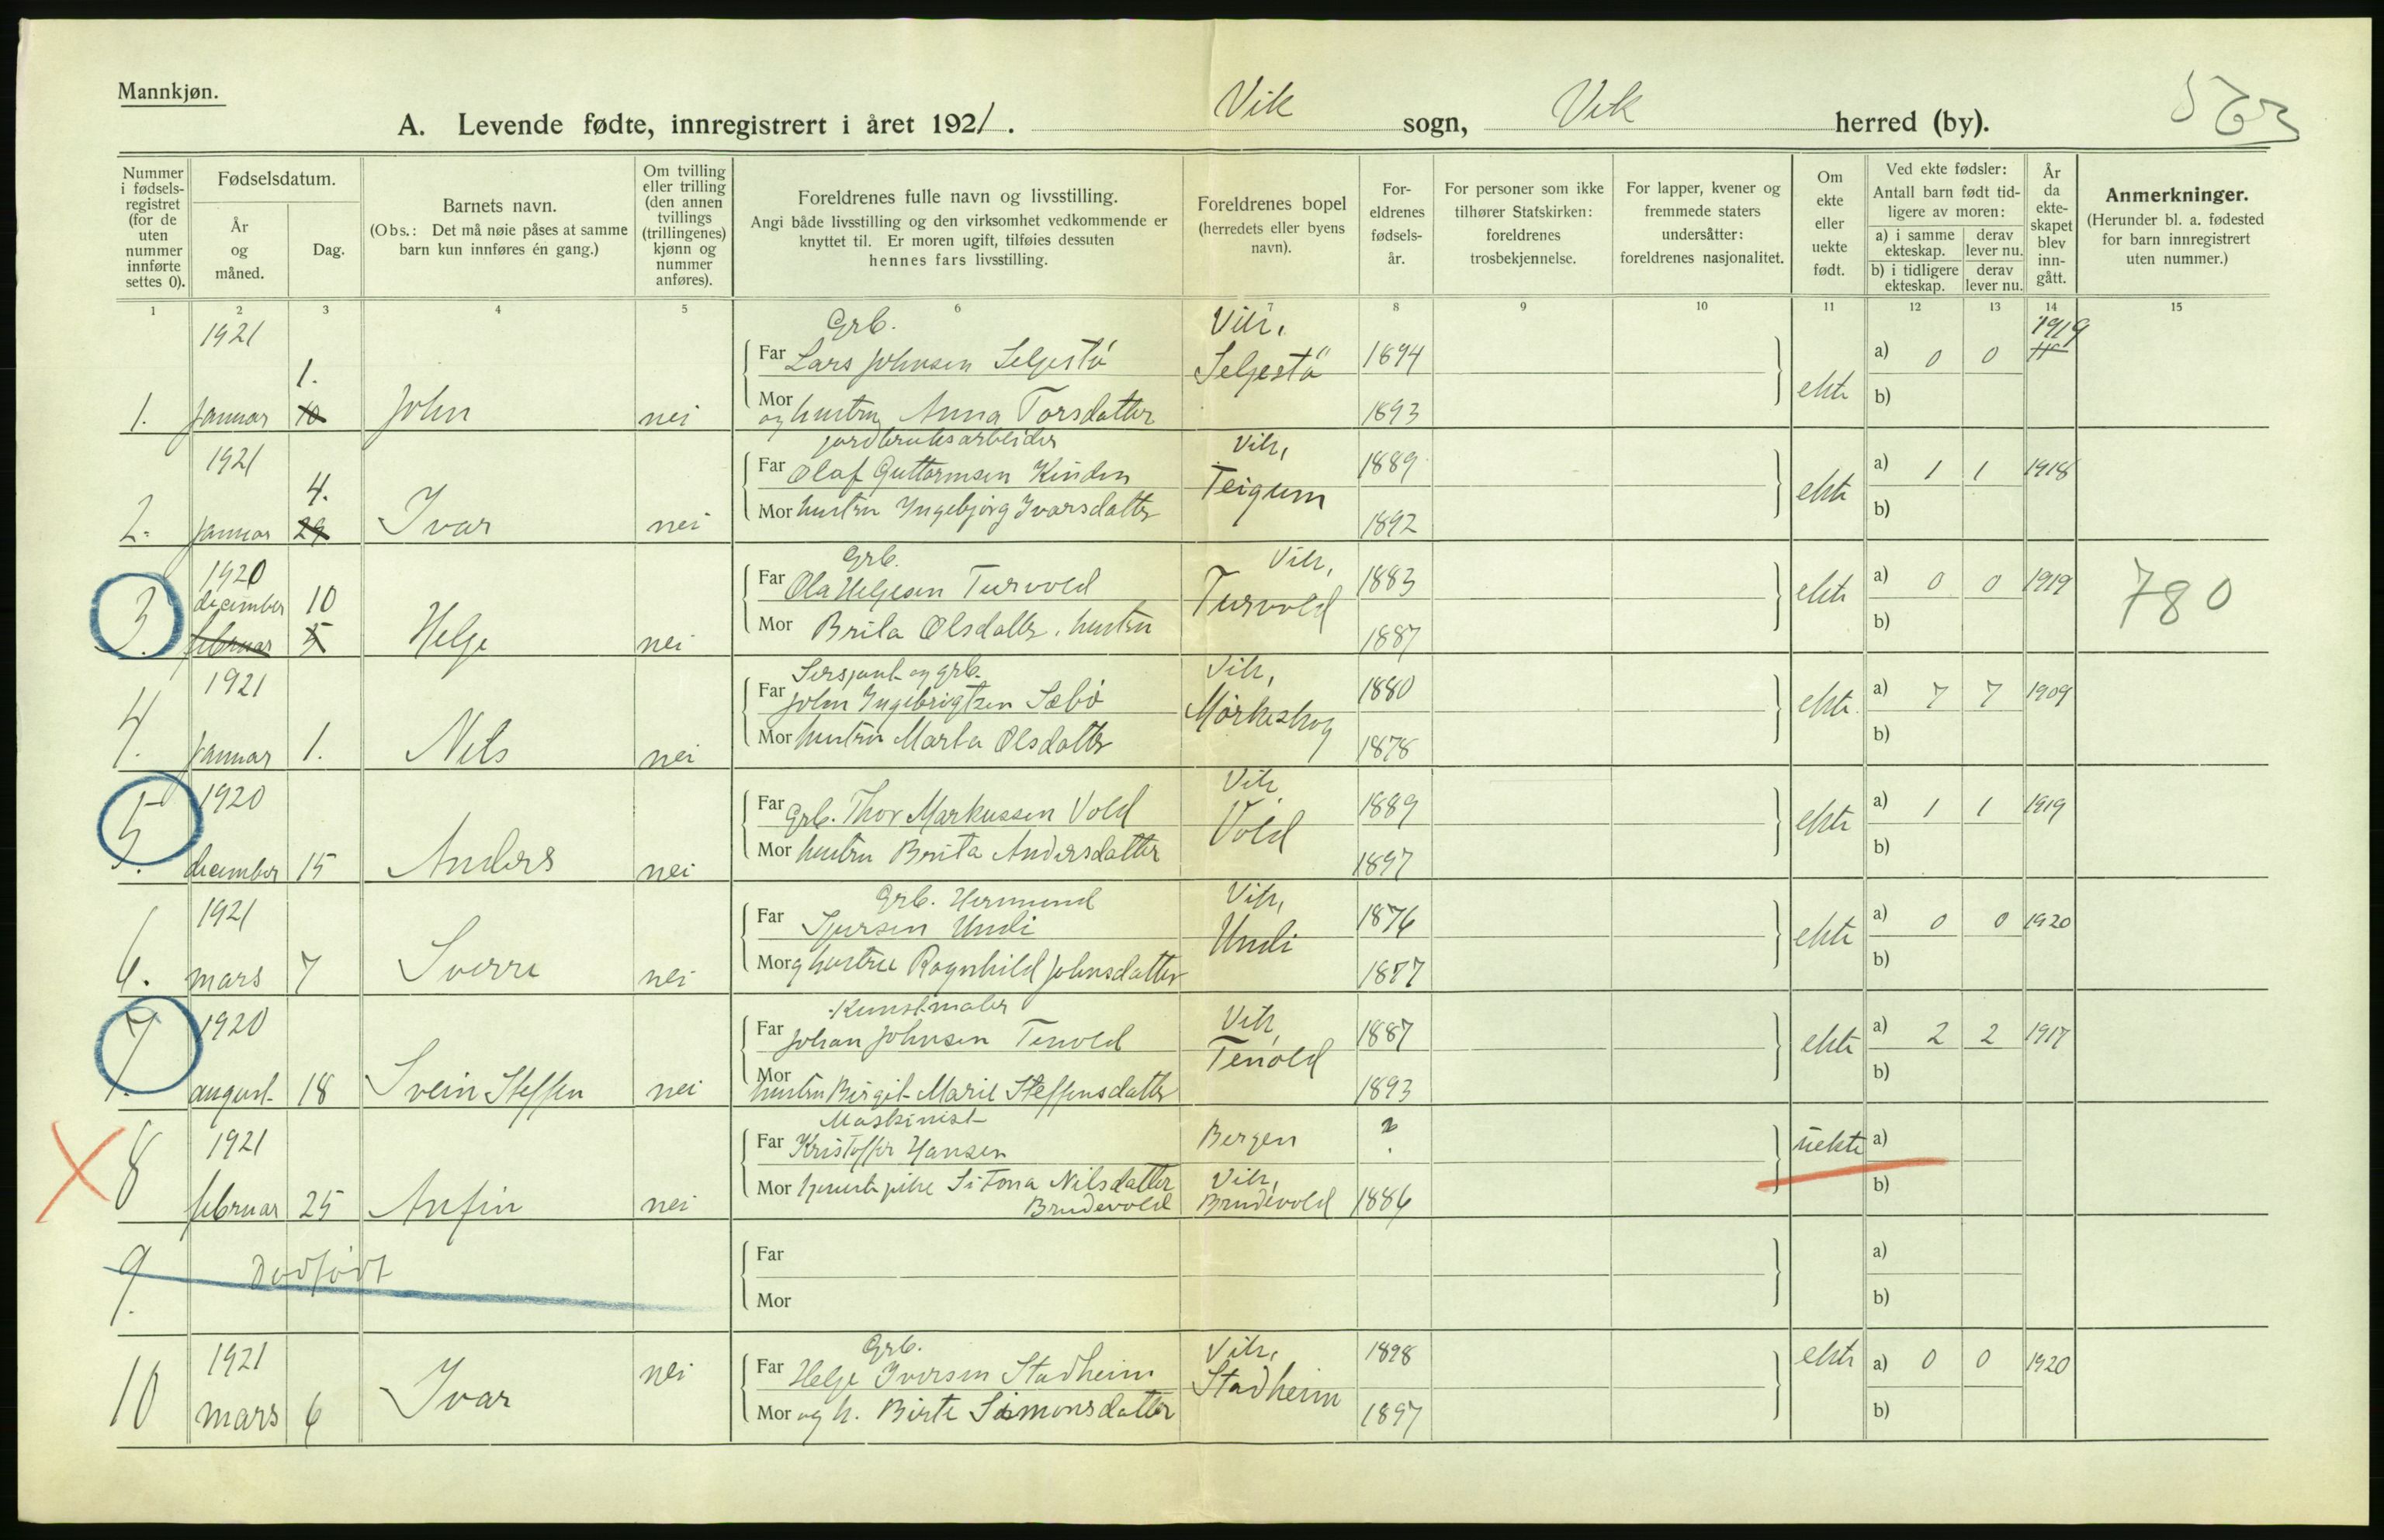 Mannkjøn.
A. Levende fødte, innregistrert i året 1921. Vik sogn, Vik herred (by).
563
Nummer i fødsels-registret (for de uten nummer innførte settes 0).
Fødselsdatum.
År og måned.
Dag.
Barnets navn.
(Obs.: Det må nøie påses at samme barn kun innføres én gang.)
Om tvilling eller trilling (den annen tvillings (trillingenes) kjønn og nummer anføres).
Foreldrenes fulle navn og livsstilling.
Angi både livsstilling og den virksomhet vedkommende er knyttet til. Er moren ugift, tilføies dessuten hennes fars livsstilling.
Foreldrenes bopel (herredets eller byens navn).
For-eldrenes fødsels-år.
For personer som ikke tilhører Statskirken: foreldrenes trosbekjennelse.
For lapper, kvener og fremmede staters undersåtter: foreldrenes nasjonalitet.
Om ekte eller uekte født.
Ved ekte fødsler:
Antall barn født tid-ligere av moren:
a) i samme ekteskap. derav lever nu.
b) i tidligere ekteskap. derav lever nu.
År da ekte-skapet blev inn-gått.
Anmerkninger.
(Herunder bl. a. fødested for barn innregistrert uten nummer.)
1 2 3 4 5 6 7 8 9 10 11 12 13 14 15
1921 Grb. Vik, 1919
1. Far Lars Johnsen Seljestö Seljestö 1894 a) 0 0
1. januar 10 John nei Mor og hustru Anna Torsdatter 1893 ekte b)
1921 jordbruksarbeider Vik,
4. Far Olaf Guttormsen Kinden Teigum 1889 a) 1 1 1918
2. januar 29 Ivar nei Mor hustru Ingebjørg Ivarsdatter 1892 ekte b)
1920 Grb. Vik,
december 10 Far Ola Helgesen Turvold Turvold 1883 ekte a) 0 0 1919 780
3. februar 5 Helge nei Mor Brita Olsdatter, hustru 1887 b)
1921 Sersjant og grb. Vik,
Far John Ingebrigtsen Sæbö Mörkeskog 1880 ekte a) 7 7 1909
4. januar 1. Nils nei Mor hustru Marta Olsdatter 1878 b)
1920 Vik
Far Grb. Thor Markussen Vold Vold 1889 ekte a) 1 1 1919
5. december 15 Anders nei Mor hustru Brita Andersdatter 1897 b)
1921 Grb. Hermund Vik,
Far Sjursen Undi Undi 1876 ekte a) 0 0 1920
6. mars 7 Sverre nei Mor og hustru Ragnhild Johnsdatter 1877 b)
1920 Kunstmaler Vik,
Far Johan Johnsen Tenold Tenold 1887 ekte a) 2 2 1917
7. august 18 Svein Steffen nei Mor hustru Birgit Marie Steffensdatter 1893 b)
1921 Maskinist
Far Kristoffer Hansen Bergen ? uekte a)
8 februar 25 Anfin nei Mor Nilsdatter Brudevold Vik, Brudevold 1886 b)
9. Dødfödt Far a)
Mor b)
1921 Grb. Vik,
nei Far Helge Iversen Stadheim Stadheim 1898 ekte a) 0 0 1920
10 mars 6 Ivar Mor og h. Birte Simonsdatter 1897 b)